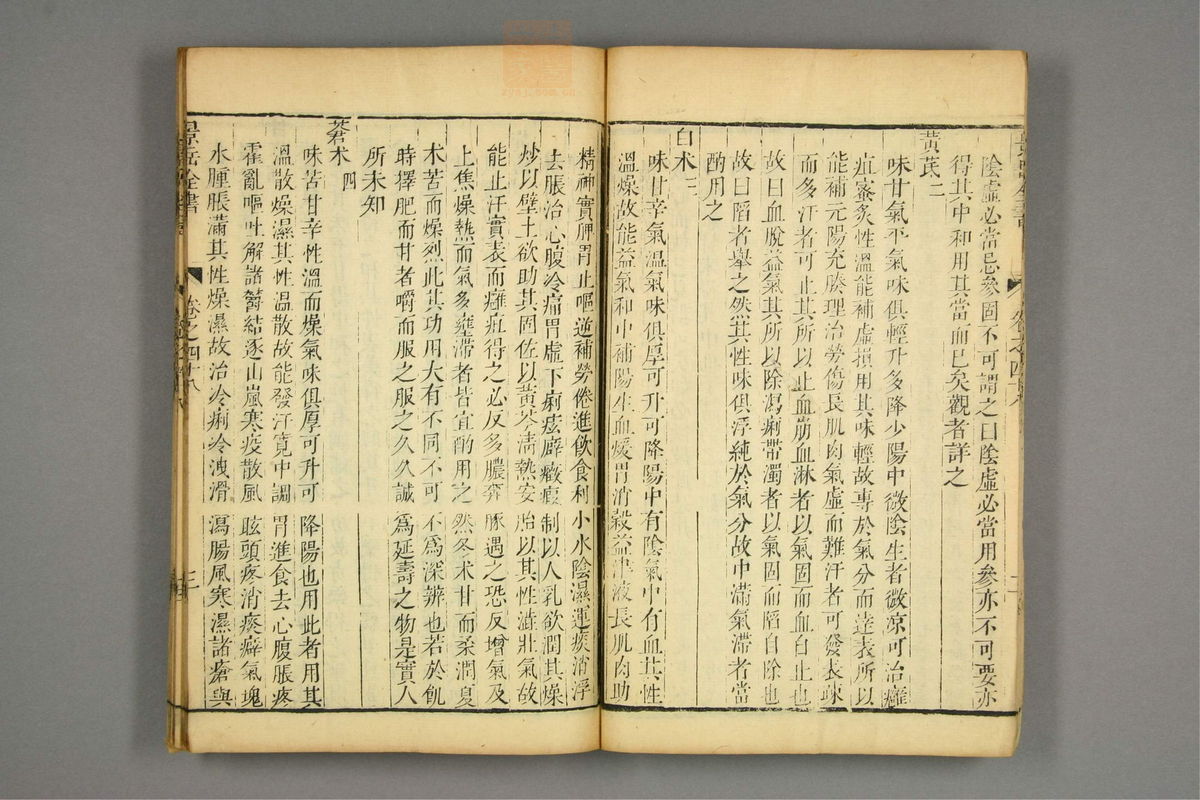 陰虛必當忌參固不可謂之曰陰虛必當用參亦不可要亦
得其中和用其當而已矣觀者詳之
黃芪二
味甘氣平氣味俱輕升多降少陽中微陰生者微涼可治癰
疽蜜炙性溫能補虛損用其味輕故專於氣分而達表所以
能補元陽充腠理治勞傷長肌肉氣虛而難汗者可發表疎
而多汗者可止其所以止血崩血淋者以氣固而血自止也
故曰血脫益氣其所以除瀉痢帶濁者以氣固而陷自除也
故曰陷者舉之然其性味俱浮純於氣分故中滿氣滯者當
酌用之
白朮三
味甘辛氣溫氣味俱厚可升可降陽中有陰氣中有血其性
溫燥故能益氣和中補陽生血煖胃消穀益津液長肌肉助
精神實脾胃止嘔逆補勞倦進飲食利小水除濕運痰消浮
去脹治心腹冷痛胃虛下痢痃癖癥瘕制以人乳欲潤其燥
炒以壁土欲助其固佐以黃芩清熱安胎以其性澀壯氣故
能止汗實表而癰疽得之必反多膿奔豚遇之恐反增氣及
上焦燥熱而氣多壅滯者皆宜酌用之然冬朮甘而柔潤夏
朮苦而燥烈此其功用大有不同不可不為深辨也若於飢
時擇肥而甘者嚼而服之服之久久誠為延壽之物是實人
所未知
蒼朮四
味苦甘辛性溫而燥氣味俱厚可升可降陽也用此者用其
溫散燥濕其性溫散故能發汗寬中調胃進食去心腹脹疼
霍亂嘔吐解諸鬱結逐山嵐寒疫散風眩頭疼消痰癖氣塊
水腫脹滿其性燥濕故治冷痢冷洩滑瀉腸風寒濕諸瘡與
景岳全書
卷之四十八
三